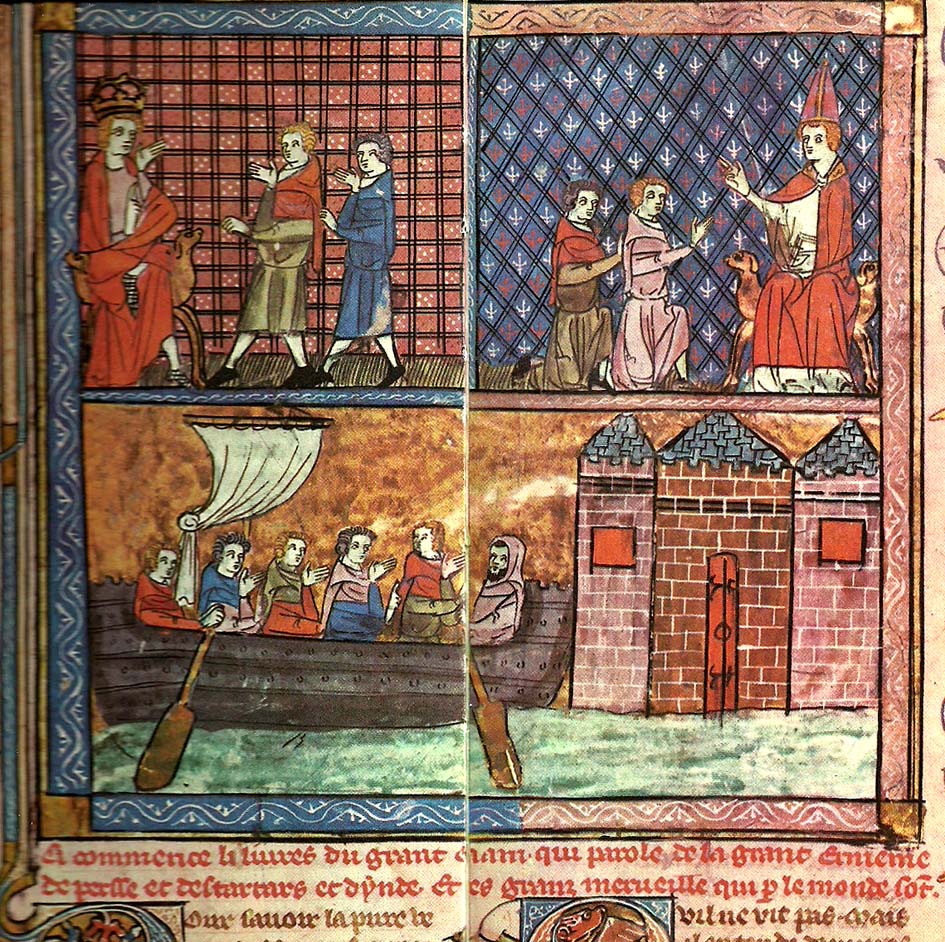 Ci commence li livres du grant chan. qui parole de la grant Ermenie
de persse et destartars et dynde. Et des granz merveille qui p le monde sōt.
our savoir la pure ve
vil ne vit pas. Mais